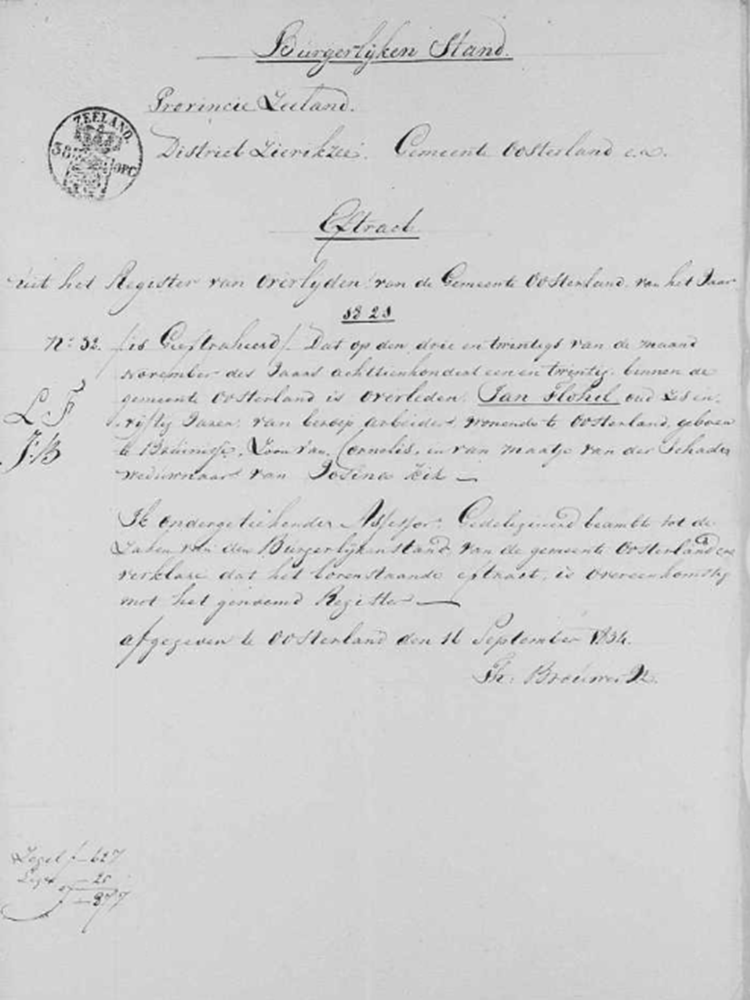 Burgerlijken Stand.
Provincie Zeeland.
ZEELAND.
38 OPC
District Zierikzee. Gemeente Oosterland c.a.
Extract
uit het Register van Overlijden van de Gemeente Oosterland van het Jaar
1821
No: 32. is Geextraheerd Dat op den drie en twintigs van de maand
November des Jaars achttienhonderd een en twintig binnen de
gemeente Oosterland is overleden Jan Flohil oud zes en
vijftig Jaren van beroep arbeider wonende te Oosterland, geboren
te Bruinisse, Zoon van Cornelis, en van Maatje van der Schade
weduwnaar van Josina
L F
J:B
Ik ondergeteekender Assessor. Gedelegeerd beambte tot de
Zaken van den Burgerlijken Stand van de gemeente Oosterland ca
verklare dat het bovenstaande extract, is overeenkomstig
met het genoemd Register
afgegeven te Oosterland den 16 September 1834.
Th: Brouwer
Zegel f - 62 7
Leges - 25
f - 87 7